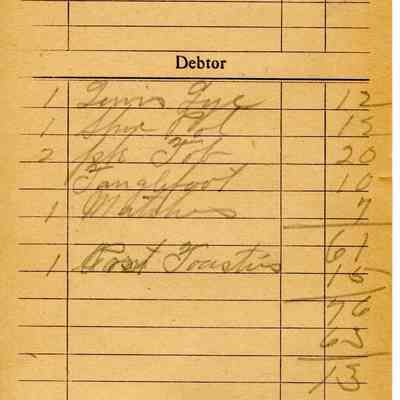 Debtor
1 Lewis Lye 12
1 Shoe Pol 12
2 pk Tob 20
Tanglefoot 10
1 Matches 7
61
1 Post Toasties 15
76
63
13